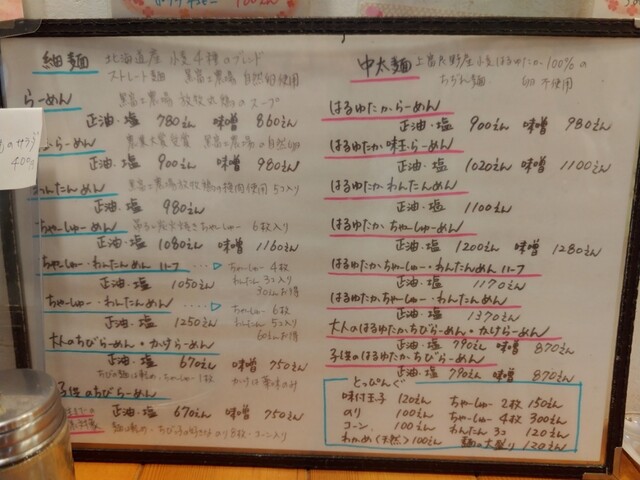 細麺 北海道産 小麦4種のブレンド
ストレート麺 黒富士農場 自然卵使用
らーめん 黒富士農場 放牧鶏のスープ
正油・塩 780えん 味噌 860えん
らーめん 農業大賞受賞 黒富士農場の自然卵
正油・塩 900えん 味噌 980えん
わんたんめん 5コ入り
正油・塩 980えん
ちゃーしゅーめん 炭火焼きちゃーしゅー 6枚入り
正油・塩 1080えん 味噌 1160えん
ちゃーしゅー・わんたんめん ハーフ ・・・・▷ ちゃーしゅー 4枚
わんたん 3コ入り
正油・塩 1050えん 30えんお得
ちゃーしゅー・わんたんめん ・・・・▷ ちゃーしゅー 6枚
わんたん 5コ入り
正油・塩 1250えん 60えんお得
大人のちびらーめん・かけらーめん
正油・塩 670えん 味噌 750えん
ちびの麺は軽め・ちゃーしゅー1枚 かけは薬味のみ
子供のちびらーめん
正油・塩 670えん 味噌 750えん
のり 8枚・コーン入り
中太麺 上富良野産小麦はるゆたか100%の
ちぢれ麺 卵不使用
はるゆたからーめん
正油・塩 900えん 味噌 980えん
はるゆたか 味玉らーめん
正油・塩 1020えん 味噌 1100えん
はるゆたか わんたんめん
正油・塩 1100えん
はるゆたか ちゃーしゅーめん
正油・塩 1200えん 味噌 1280えん
はるゆたか ちゃーしゅー・わんたんめん ハーフ
正油・塩 1170えん
はるゆたか ちゃーしゅー・わんたんめん
正油・塩 1370えん
大人のはるゆたかちびらーめん・かけらーめん
正油・塩 790えん 味噌 870えん
子供のはるゆたかちびらーめん
正油・塩 790えん 味噌 870えん
とっぴんぐ
味付玉子 120えん ちゃーしゅー 2枚 150えん
のり 100えん ちゃーしゅー 4枚 300えん
コーン 100えん わんたん 3コ 120えん
わかめ(天然) 100えん 麺の大盛り 120えん